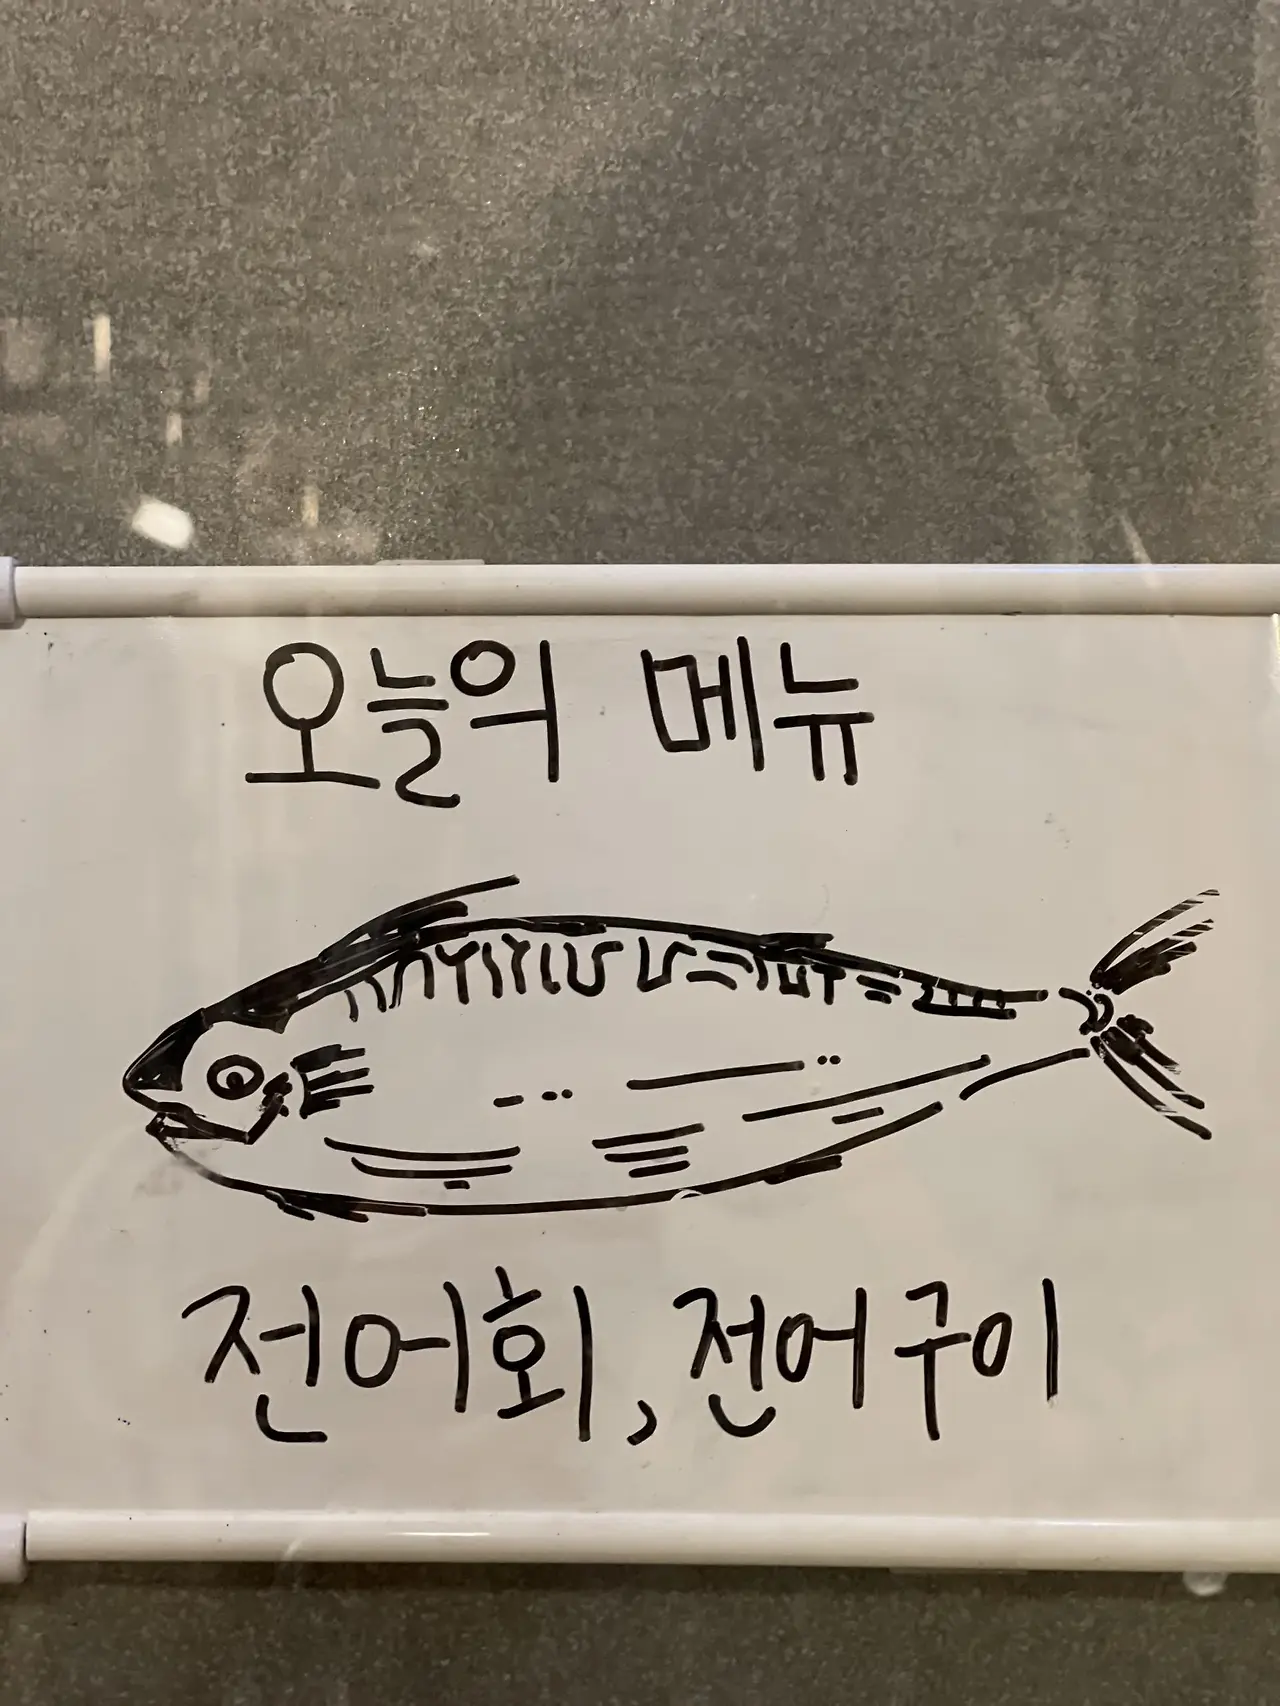 오늘의 메뉴
전어회, 전어구이